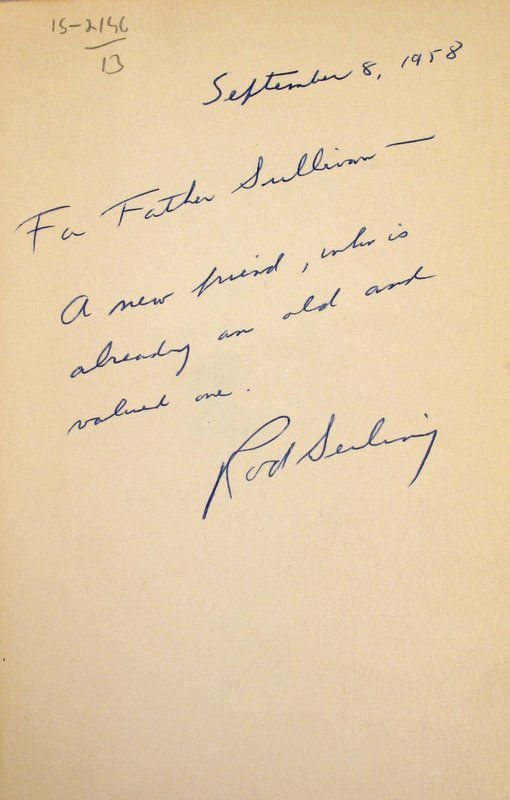 15-2156
13
September 8, 1958
For Father Sullivan —
A new friend, who is
already an old and
valued one.
Rod Serling